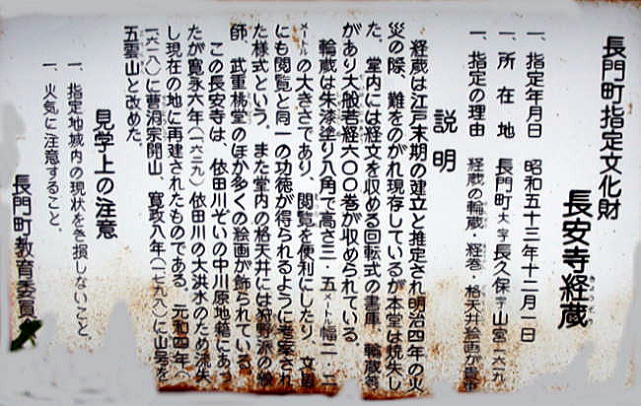 長門町指定文化財
長安寺経蔵
きょうぞう
一、指定年月日 昭和五十三年十二月一日
一、所在地 長門町大字長久保字山宮一六一九
一、指定の理由 経蔵の輪蔵・経巻・格天井絵画が貴重
説明
経蔵は江戸末期の建立と推定され明治四年の火
災の際、難をのがれ現存しているが本堂は焼失し
た。堂内には経文を収める回転式の書庫、輪蔵
があり大般若経六〇〇巻が収められている。
輪蔵は朱漆塗り八角で高さ三・五メートル幅二・二
メートルの大きさであり、閲覧を便利にしたり、文盲
にも閲覧と同一の功徳が得られるように考案され
た様式という。また堂内の格天井には狩野派の
師、武重桃堂のほか多くの絵画が飾られている。
この長安寺は、依田川ぞいの中川原地籍にあっ
たが寛永六年(一六二九)依田川の大洪水のため流失
し現在の地に再建されたものである。元和四年(
一六一八)に曹洞宗開山、寛政八年(一七九八)に山号を
五雲山と改めた。
見学上の注意
一、指定地域内の現状をき損しないこと。
一、火気に注意すること。
長門町教育委員